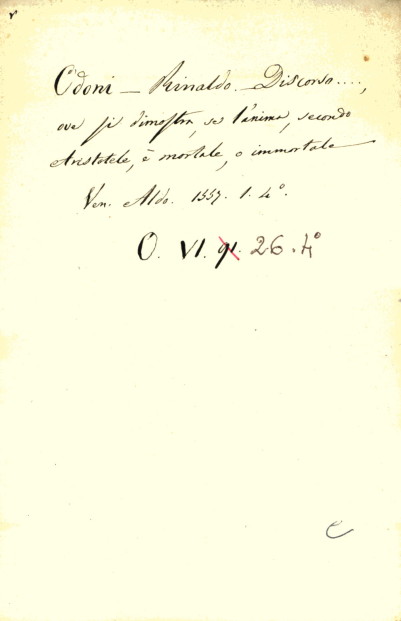 Odoni — Rinaldo — Discorso....,
ove si dimostra, se l'anima, secondo
Aristotele, è mortale, o immortale
Ven. Aldo. 1557. 1. 4°.
O. VI. 91. 26. 4°
C